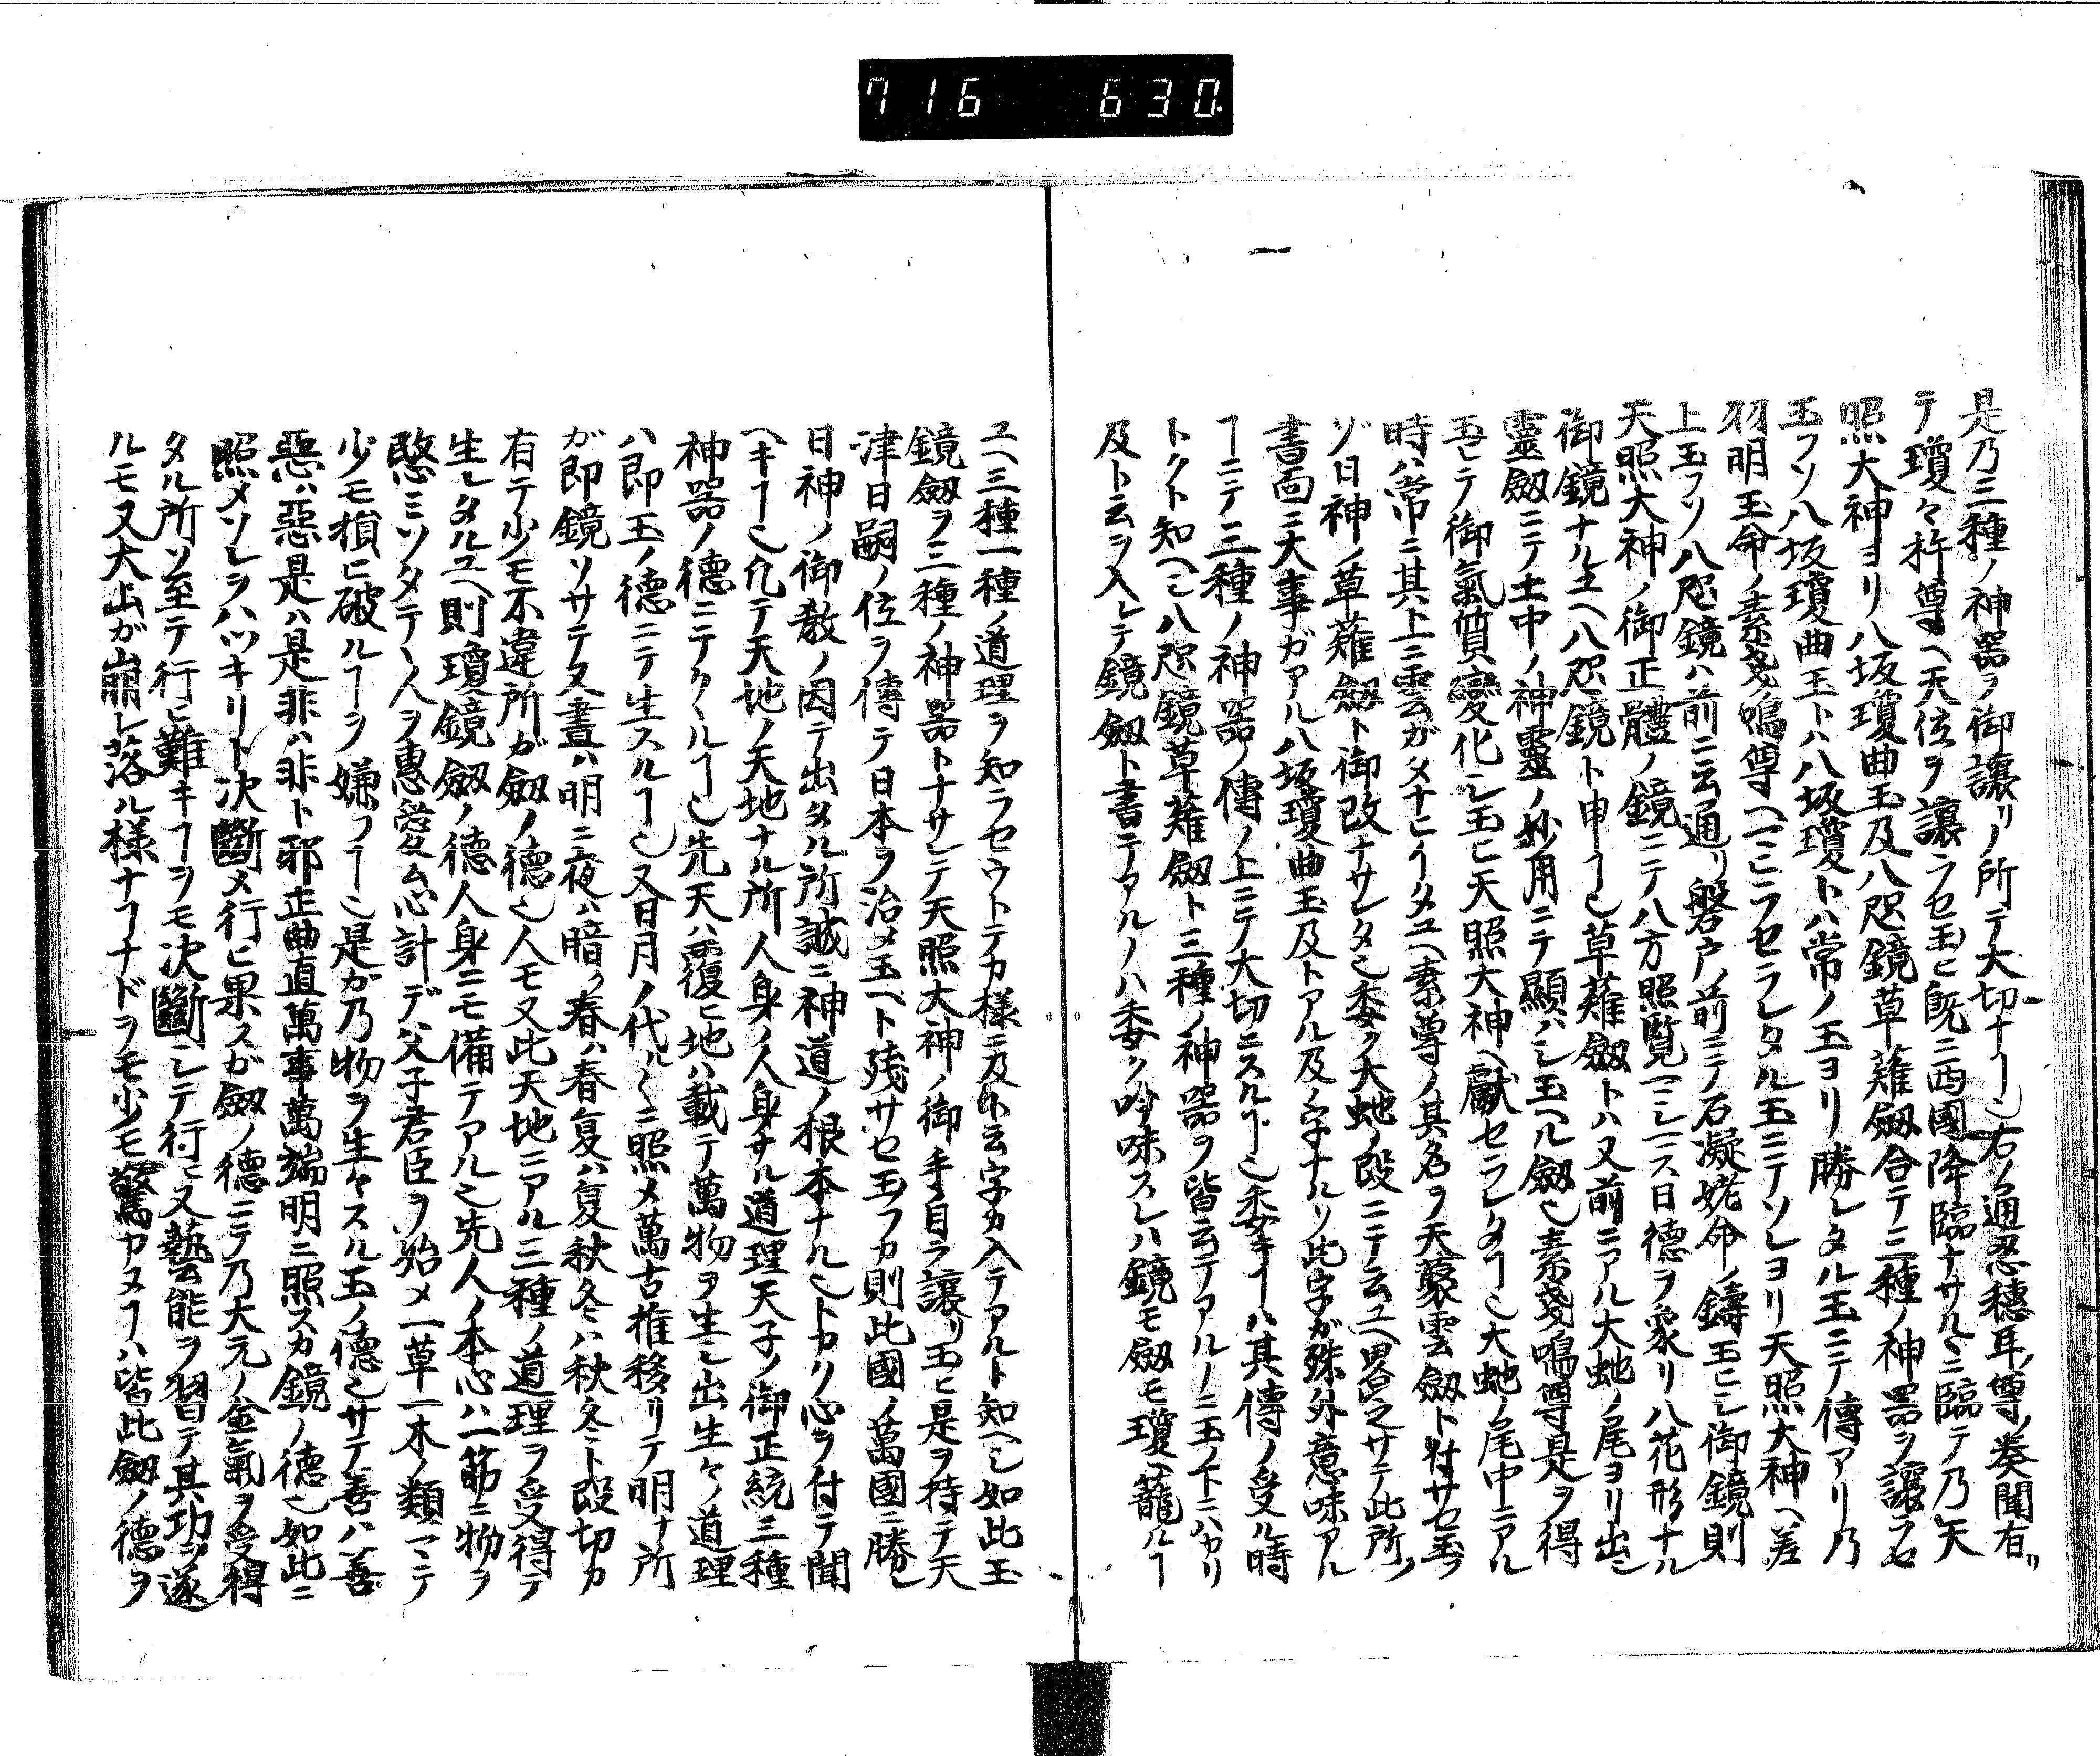 716 630
是乃三種ノ神器ヲ御讓リノ所テ大切ナヿ也右ノ通忍穗耳尊ノ奏聞有リ
テ瓊々杵尊ヘ天位ヲ讓ラセ玉ヒ既ニ西國降臨ナサルヽニ臨テ乃天
照大神ヨリ八坂瓊曲玉及八咫鏡草薙劔合テ三種ノ神器ヲ讓ラセ
玉フソ八坂瓊曲玉トハ八坂瓊トハ常ノ玉ヨリ勝レタル玉ニテ傳アリ乃
羽明玉命ノ素戔嗚尊ヘマヒラセラレタル玉ニテソレヨリ天照大神ヘ差
上玉フソ八咫鏡ハ前ニ云通リ磐戸ノ前ニテ石凝姥命ノ鑄玉ヒシ御鏡則
天照大神ノ御正體ノ鏡ニテ八方照覽マシマス日德ヲ象リ八花形ナル
御鏡ナルユヘ八咫鏡ト申ヿ也草薙劔トハ又前ニアル大虵ノ尾ヨリ出シ
靈劔ニテ土中ノ神靈ノ妙用ニテ顯ハレ玉ヘル劔也素戔嗚尊是ヲ得
玉ヒテ御氣質變化シ玉ヒ天照大神ヘ獻セラレタヿ也大虵ノ尾中ニアル
時ハ常ニ其上ニ雲ガタナヒイタユヘ素尊ノ其名ヲ天藂雲劔ト付サセ玉フ
ゾ日神ノ草薙劔ト御改ナサレタ也委ク大虵ノ段ニテ云ユヘ畧之サテ此所ノ
書面ニ大事ガアル八坂瓊曲玉及トアル及ノ字ナルソ此字ガ殊外意味アル
ヿニテ三種ノ神器ノ傳ノ上ニテ大切ニスルヿ也委キヿハ其傳ノ受ル時
トクト知ヘシ八咫鏡草薙劔ト三種ノ神器ヲ皆云テアルノニ玉ノ下ニハカリ
及ト云ヲ入レテ鏡劔ト書ニアルノハ委ク吟味スレハ鏡モ劔モ瓊ヘ蘢ルヿ
ユヘ三種一種ノ道理ヲ知ラセウトテカ樣ニ及ト云字カ入テアルト知ヘシ如此玉
鏡劔ヲ三種ノ神器トナサレテ天照大神ノ御手自ラ讓リ玉ヒ是ヲ持テ天
津日嗣ノ位ヲ傳テ日本ヲ治メ玉ヘト殘サセ玉フカ則此國ノ萬國ニ勝レ
日神ノ御敎ノ因テ出タル所誠ニ神道ノ根本ナル也トカク心ヲ付テ聞
ヘキヿ也凢テ天地ノ天地ナル所人身ノ人身ナル道理天子ノ御正統三種
神器ノ德ニテクヽルヿ也先天ハ覆ヒ地ハ載テ萬物ヲ生シ出生々ノ道理
ハ即玉ノ德ニテ生スルヿ也又日月ノ代ル〳〵ニ照メ萬古推移リテ明ナ所
が即鏡ソサテ又晝ハ明ニ夜ハ暗ク春ハ春夏ハ夏秋冬ハ秋冬ト段切カ
有テ少モ不違所ガ劔ノ德也人モ又此天地ニアル三種ノ道理ヲ受得テ
生レタルユヘ則瓊鏡劔ノ德人身ニモ備テアル也先人ノ本心ハ一筋ニ物ヲ
愍ミソタテ人ヲ惠愛ム心計デ父子君臣ヲ始メ一草一木ノ類マテ
少モ損ヒ破ルヿヲ嫌フヿ也是カ乃物ヲ生々スル玉ノ德也サテ善ハ善
惡ハ惡是ハ是非ハ非ト邪正曲直萬事萬端明ニ照スカ鏡ノ德也如此ニ
照メソレヲハツキリト决斷メ行ヒ果スガ劔ノ德ニテ乃大元ノ金氣ヲ受得
タル所ソ至テ行ヒ難キヿヲモ决斷シテ行ヒ又藝能ヲ習テ其功ヲ遂
ルモ又大山が崩レ落ル樣ナヿナドヲモ少モ驚カヌヿハ皆此劔ノ德ヲ